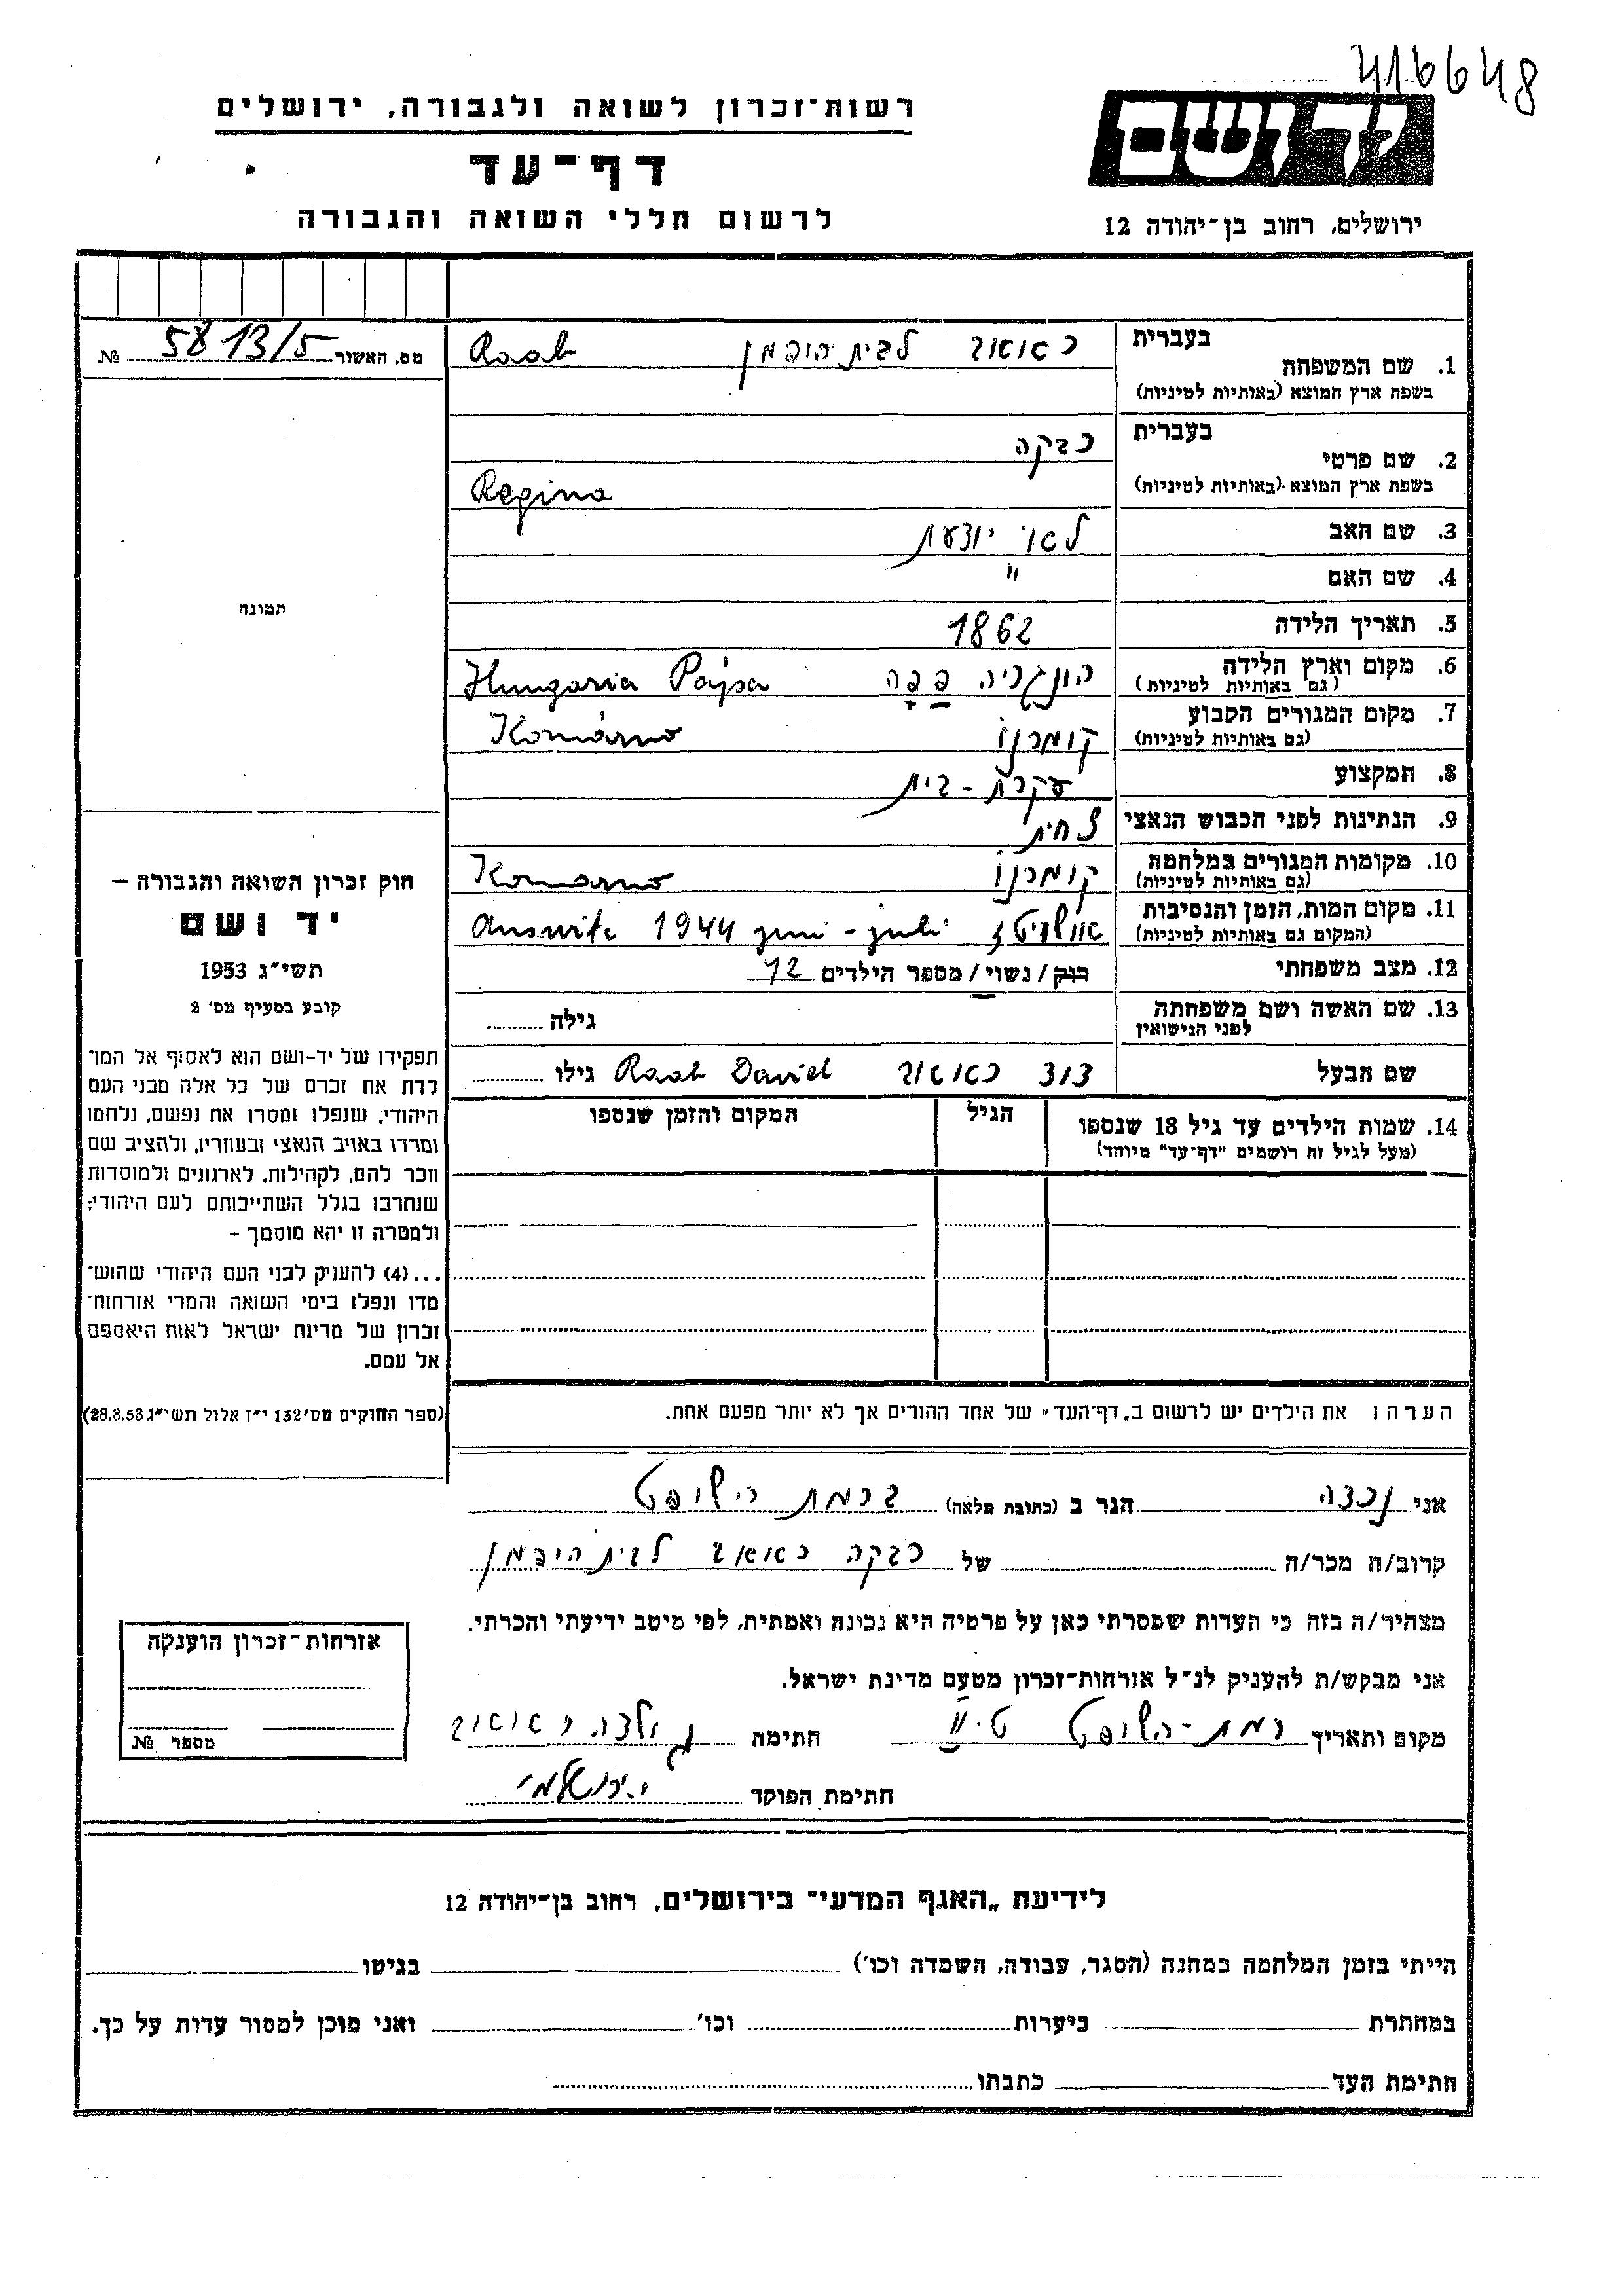 416648
רשות־זכרון לשואה ולגבורה, ירושלים
דף־עד
לרשום חללי השואה והגבורה
יד ושם
ירושלים, רחוב בן־יהודה 12
מס. האשור 5813/5 №
תמונה
חוק זכרון השואה והגבורה –
יד ושם
תשי"ג 1953
קובע בסעיף מס' 2
תפקידו של יד-ושם הוא לאסוף אל המו־
לדת את זכרם של כל אלה מבני העם
היהודי, שנפלו ומסרו את נפשם, נלחמו
ומרדו באויב הנאצי ובעוזריו, ולהציב שם
וזכר להם, לקהילות, לארגונים ולמוסדות
שנחרבו בגלל השתייכותם לעם היהודי;
ולמטרה זו יהא מוסמך –
...(4) להעניק לבני העם היהודי שהוש־
מדו ונפלו בימי השואה והמרי אזרחות־
זכרון של מדינת ישראל לאות היאספם
אל עמם.
(ספר החוקים מס' 132 י"ז אלול תשי"ג 28.8.53)
בעברית ראאב לבית הופמן Raab
1. שם המשפחה
בשפת ארץ המוצא (באותיות לטיניות)
בעברית רבקה
2. שם פרטי
בשפת ארץ המוצא (באותיות לטיניות) Regina
3. שם האב לא יודעת
4. שם האם "
5. תאריך הלידה 1862
6. מקום וארץ הלידה הונגריה פפה Hungaria Pápa
(גם באותיות לטיניות)
7. מקום המגורים הקבוע קומרנו Komárno
(גם באותיות לטיניות)
8. המקצוע עקרת-בית
9. הנתינות לפני הכבוש הנאצי צ'כית
10. מקומות המגורים במלחמה קומרנו Komárno
(גם באותיות לטיניות)
11. מקום המות, הזמן והנסיבות אושוויטץ יוני-יולי 1944 Auswitz
(המקום גם באותיות לטיניות)
12. מצב משפחתי רוק / נשוי / מספר הילדים 12
13. שם האשה ושם משפחתה גילה
לפני הנישואין
שם הבעל דוד ראאב Raab David גילו
14. שמות הילדים עד גיל 18 שנספו הגיל המקום והזמן שנספו
(מעל לגיל זה רושמים "דף־עד" מיוחד)
הערה: את הילדים יש לרשום ב„דף־העד" של אחד ההורים אך לא יותר מפעם אחת.
אני נכדה הגר ב (כתובת מלאה) ברמת השופט
קרוב/ה מכר/ה של רבקה ראאב לבית הופמן
מצהיר/ה בזה כי העדות שמסרתי כאן על פרטיה היא נכונה ואמתית, לפי מיטב ידיעתי והכרתי.
אני מבקש/ת להעניק לנ"ל אזרחות־זכרון מטעם מדינת ישראל.
מקום ותאריך רמת-השופט חתימה ראאב
חתימת הפוקד ירושלמי
אזרחות־זכרון הוענקה
מספר №
לידיעת „האגף המדעי" בירושלים, רחוב בן־יהודה 12
הייתי בזמן המלחמה במחנה (הסגר, עבודה, השמדה וכו') בגיטו
במחתרת ביערות וכו' ואני מוכן למסור עדות על כך.
חתימת העד כתבתו